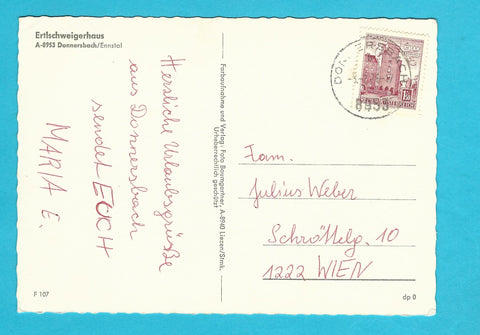 Ertlschweigerhaus
A-8953 Donnersbach/Ennstal
Herzliche Urlaubsgrüße
aus Donnersbach
sendet EUCH
MARIA E.
Farbaufnahme und Verlag: Foto Baumgartner, A-8940 Liezen/Stmk.
Urheberrechtlich geschützt
8953
Fam.
Julius Weber
10
1222 WIEN
F 107
dp 0